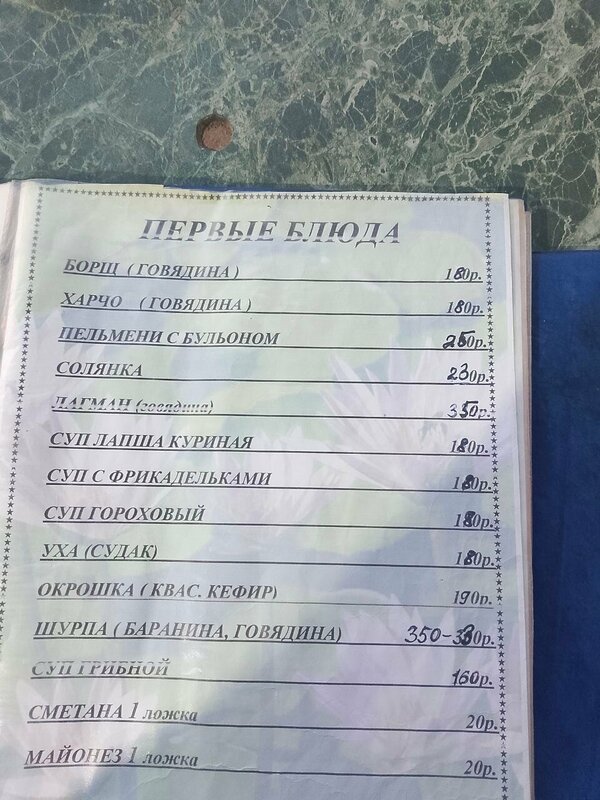 ПЕРВЫЕ БЛЮДА
БОРЩ (ГОВЯДИНА) 180р.
ХАРЧО (ГОВЯДИНА) 180р.
ПЕЛЬМЕНИ С БУЛЬОНОМ 250р.
СОЛЯНКА 230р.
ЛАГМАН (говядина) 350р.
СУП ЛАПША КУРИНАЯ 180р.
СУП С ФРИКАДЕЛЬКАМИ 180р.
СУП ГОРОХОВЫЙ 180р.
УХА (СУДАК) 180р.
ОКРОШКА (КВАС. КЕФИР) 190р.
ШУРПА (БАРАНИНА, ГОВЯДИНА) 350-330р.
СУП ГРИБНОЙ 160р.
СМЕТАНА 1 ложка 20р.
МАЙОНЕЗ 1 ложка 20р.